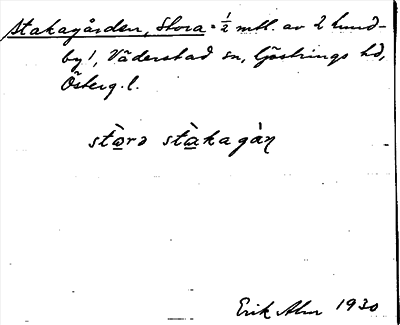 Stakagården, Stora = ½ mtl. av 2 Lund-
by 1, Väderstad sn, Göstrings hd,
Österg. l.
stòrə stàkagàṇ
Erik Alm 1930